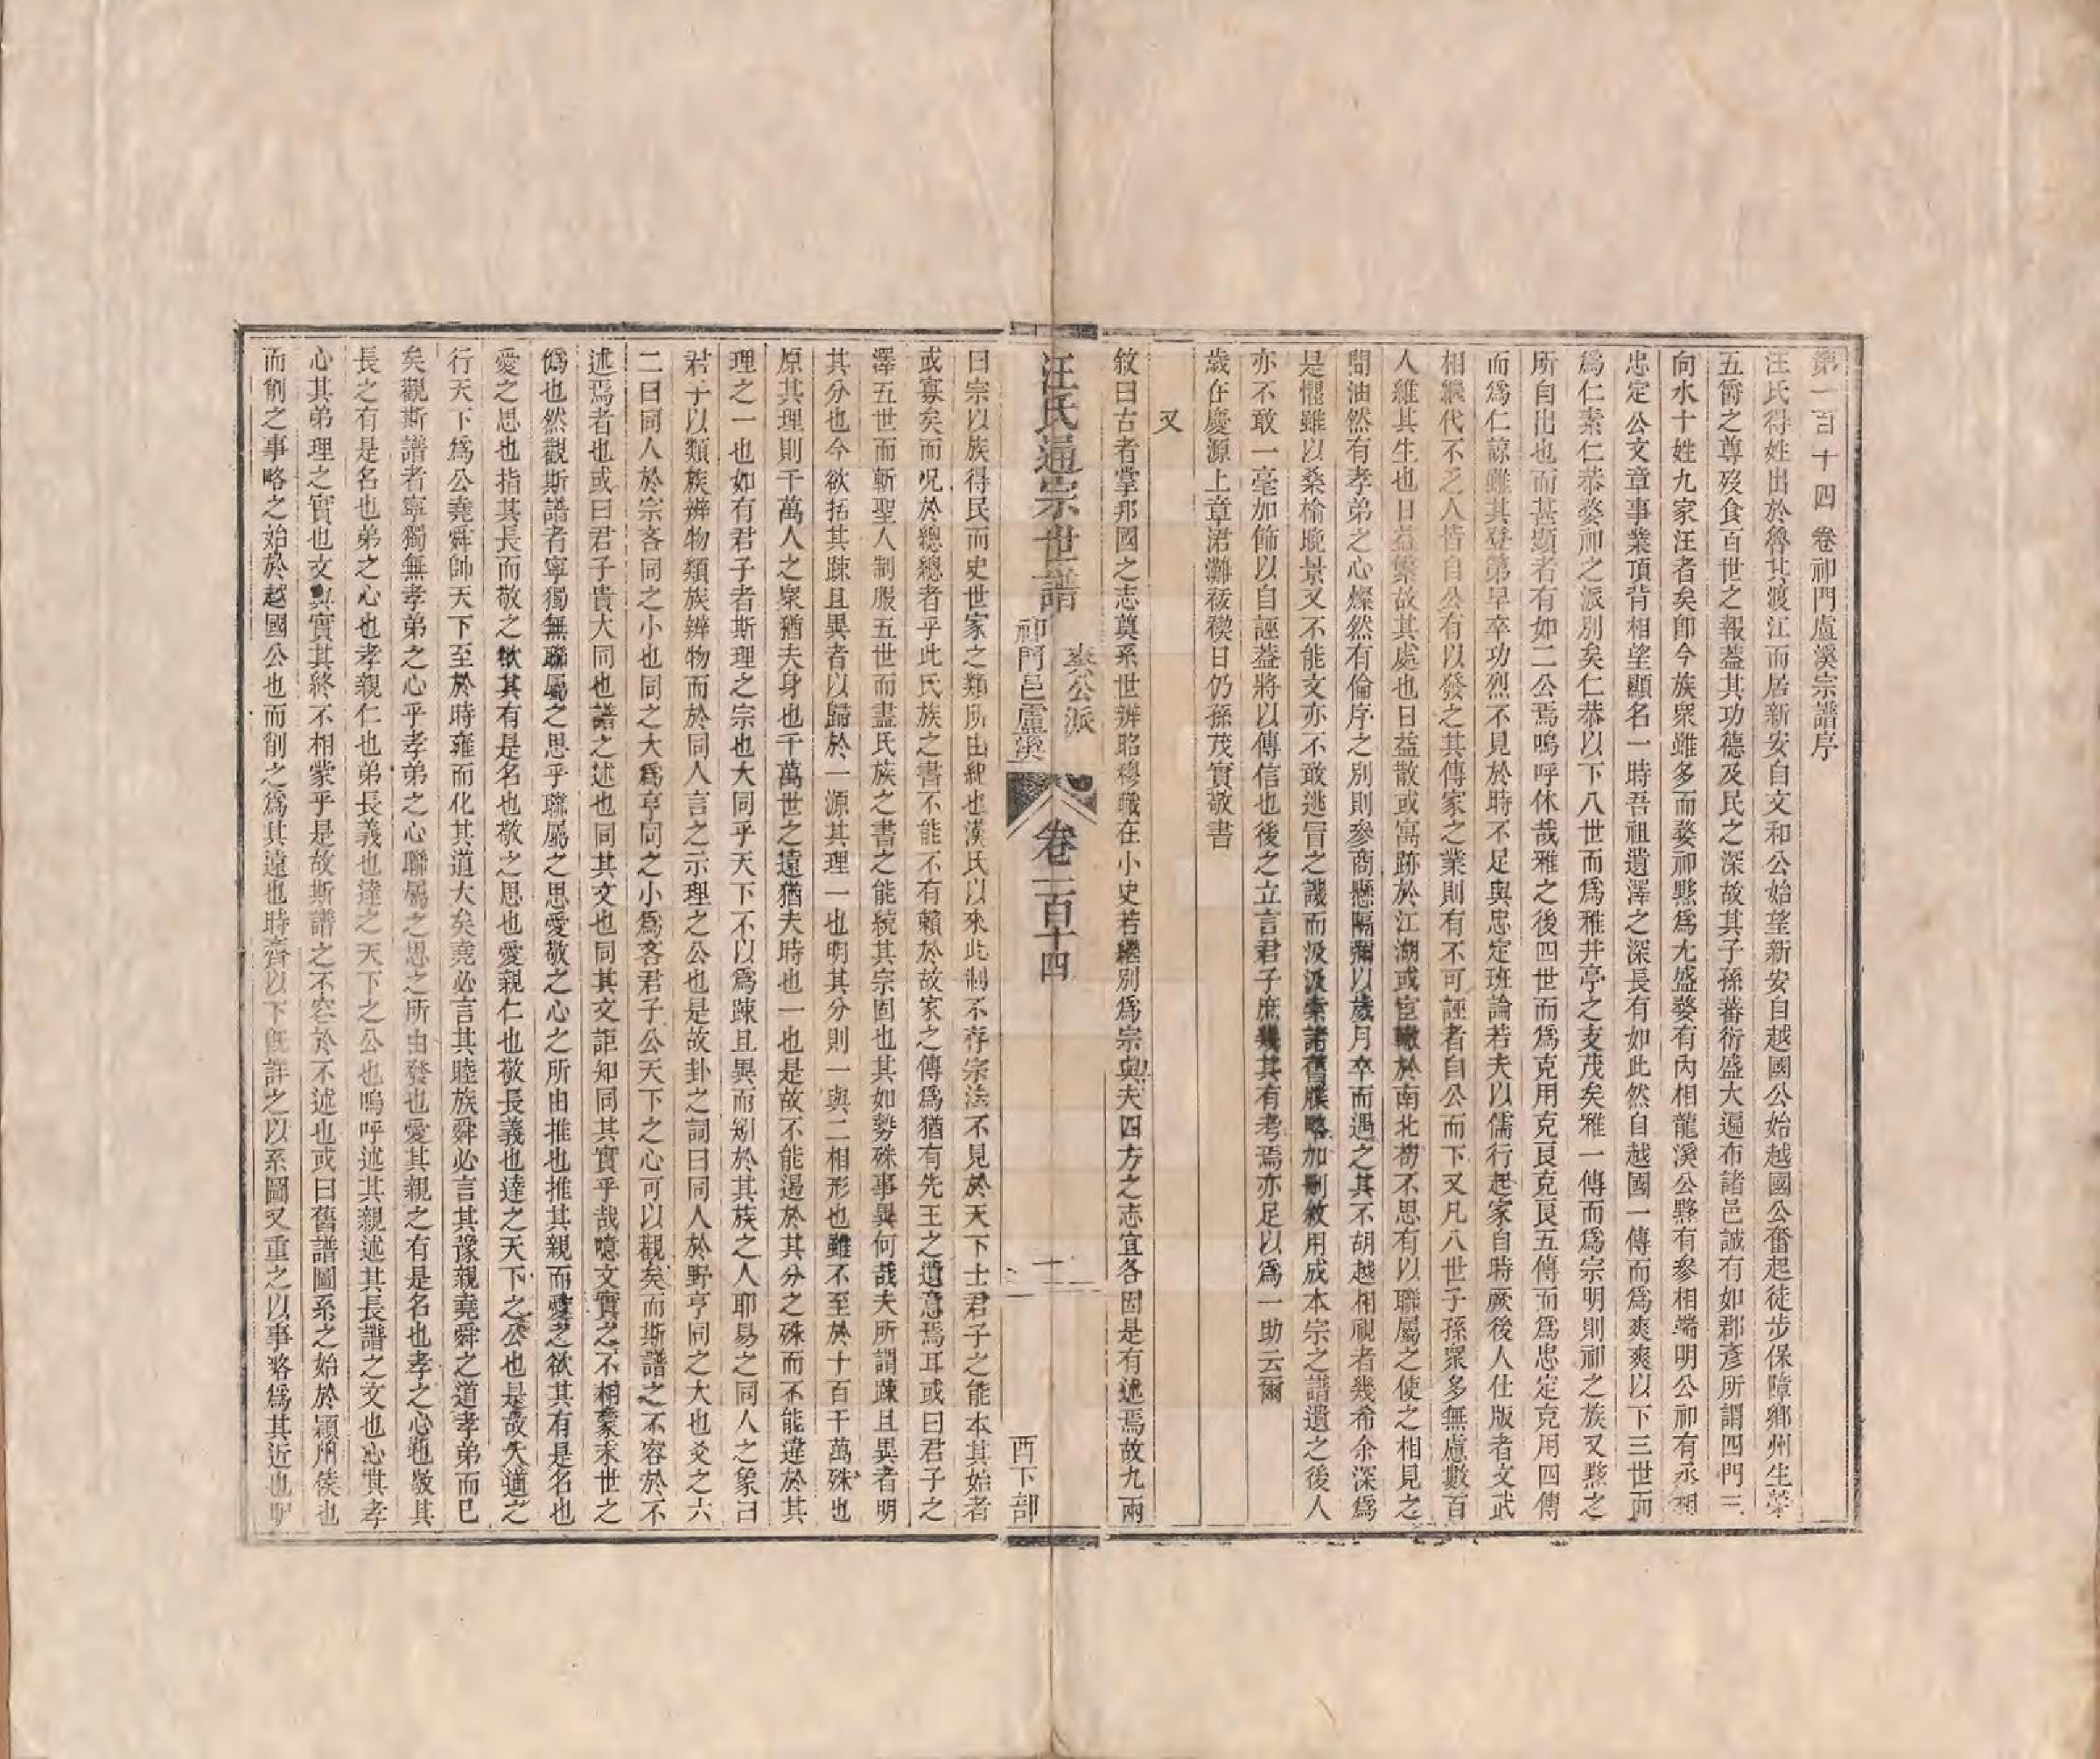 第一百十四卷祁門盧溪宗譜序
汪氏得姓出於魯其渡江而居新安自文和公始望新安自越國公始越國公奮起徒步保障鄉州生榮
五爵之尊歿食百世之報葢其功德及民之深故其子孫蕃衍盛大遍布諸邑誠有如郡彥所謂四門三
向水十姓九家汪者矣卽今族衆雖多而婺祁黟爲尤盛婺有內相龍溪公黟有參相端明公祁有丞相
忠定公文章事業頂背相望顯名一時吾祖遺澤之深長有如此然自越國一傳而爲爽爽以下三世而
爲仁素仁恭婺祁之派別矣仁恭以下八世而爲雅井亭之支茂矣雅一傳而爲宗明則祁之族又黟之
所自出也而甚顯者有如二公焉嗚呼休哉雅之後四世而爲克用克艮克良五傳而爲忠定克用四傳
而爲仁諒雖其登第早卒功烈不見於時不足與忠定班論若夫以儒行起家自時厥後人仕版者文武
相繼代不乏人皆自公有以發之其傳家之業則有不可誣者自公而下又凡八世子孫衆多無慮數百
人維其生也日益繁故其處也日益散或寓跡於江湖或宦轍於南北苟不思有以聯屬之使之相見之
間油然有孝弟之心燦然有倫序之別則參商懸隔彌以歲月卒而遇之其不胡越相視者幾希余深爲
是懼雖以桑榆晚景又不能文亦不敢逃冒之譏而汲汲索諸舊牒略加刪敘用成本宗之譜遺之後人
亦不敢一毫加飾以自誣葢將以傳信也後之立言君子庶幾其有考焉亦足以爲一助云爾
歲在慶源上章涒灘秡禊日仍孫茂實敬書
又
敘曰古者掌邦國之志奠系世辨昭穆職在小史若繼別爲宗與夫四方之志宜各因是有述焉故九兩
汪氏通宗世譜
爽公派
祁門邑盧溪
卷一百十四
十一
酉下部
曰宗以族得民而史世家之類所由紀也漢氏以來此制不存宗法不見於天下士君子之能本其始者
或寡矣而況於總總者乎此氏族之書不能不有賴於故家之傳爲猶有先王之遺意焉耳或曰君子之
澤五世而斬聖人制服五世而盡氏族之書之能統其宗固也其如勢殊事異何哉夫所謂踈且異者明
其分也今欲拓其踈且異者以歸於一源其理一也明其分則一與二相形也雖不至於十百千萬殊也
原其理則千萬人之衆猶夫身也千萬世之遠猶夫時也一也是故不能遏於其分之殊而不能違於其
理之一也如有君子者斯理之宗也大同乎天下不以爲踈且異而矧於其族之人耶易之同人之象曰
君子以類族辨物類族辨物而於同人言之示理之公也是故卦之詞曰同人於野亨同之大也爻之六
二曰同人於宗吝同之小也同之大爲亨同之小爲吝君子公天下之心可以觀矣而斯譜之不容於不
述焉者也或曰君子貴大同也譜之述也同其文也同其文詎知同其實乎哉噫文實之不相蒙末世之
僞也然觀斯譜者寧獨無聯屬之思乎聯屬之思愛敬之心之所由推也推其親而愛之欲其有是名也
愛之思也指其長而敬之欲其有是名也敬之思也愛親仁也敬長義也達之天下之公也是故大道之
行天下爲公堯舜帥天下至於時雍而化其道大矣堯必言其睦族舜必言其豫親堯舜之道孝弟而已
矣觀斯譜者寧獨無孝弟之心乎孝弟之心聯屬之思之所由發也愛其親之有是名也孝之心也敬其
長之有是名也弟之心也孝親仁也弟長義也達之天下之公也嗚呼述其親述其長譜之文也心其孝
心其弟理之實也文與實其終不相蒙乎是故斯譜之不容於不述也或曰舊譜圖系之始於潁川侯也
而削之事略之始於越國公也而削之爲其遠也時齊以下旣詳之以系圖又重之以事略爲其近也